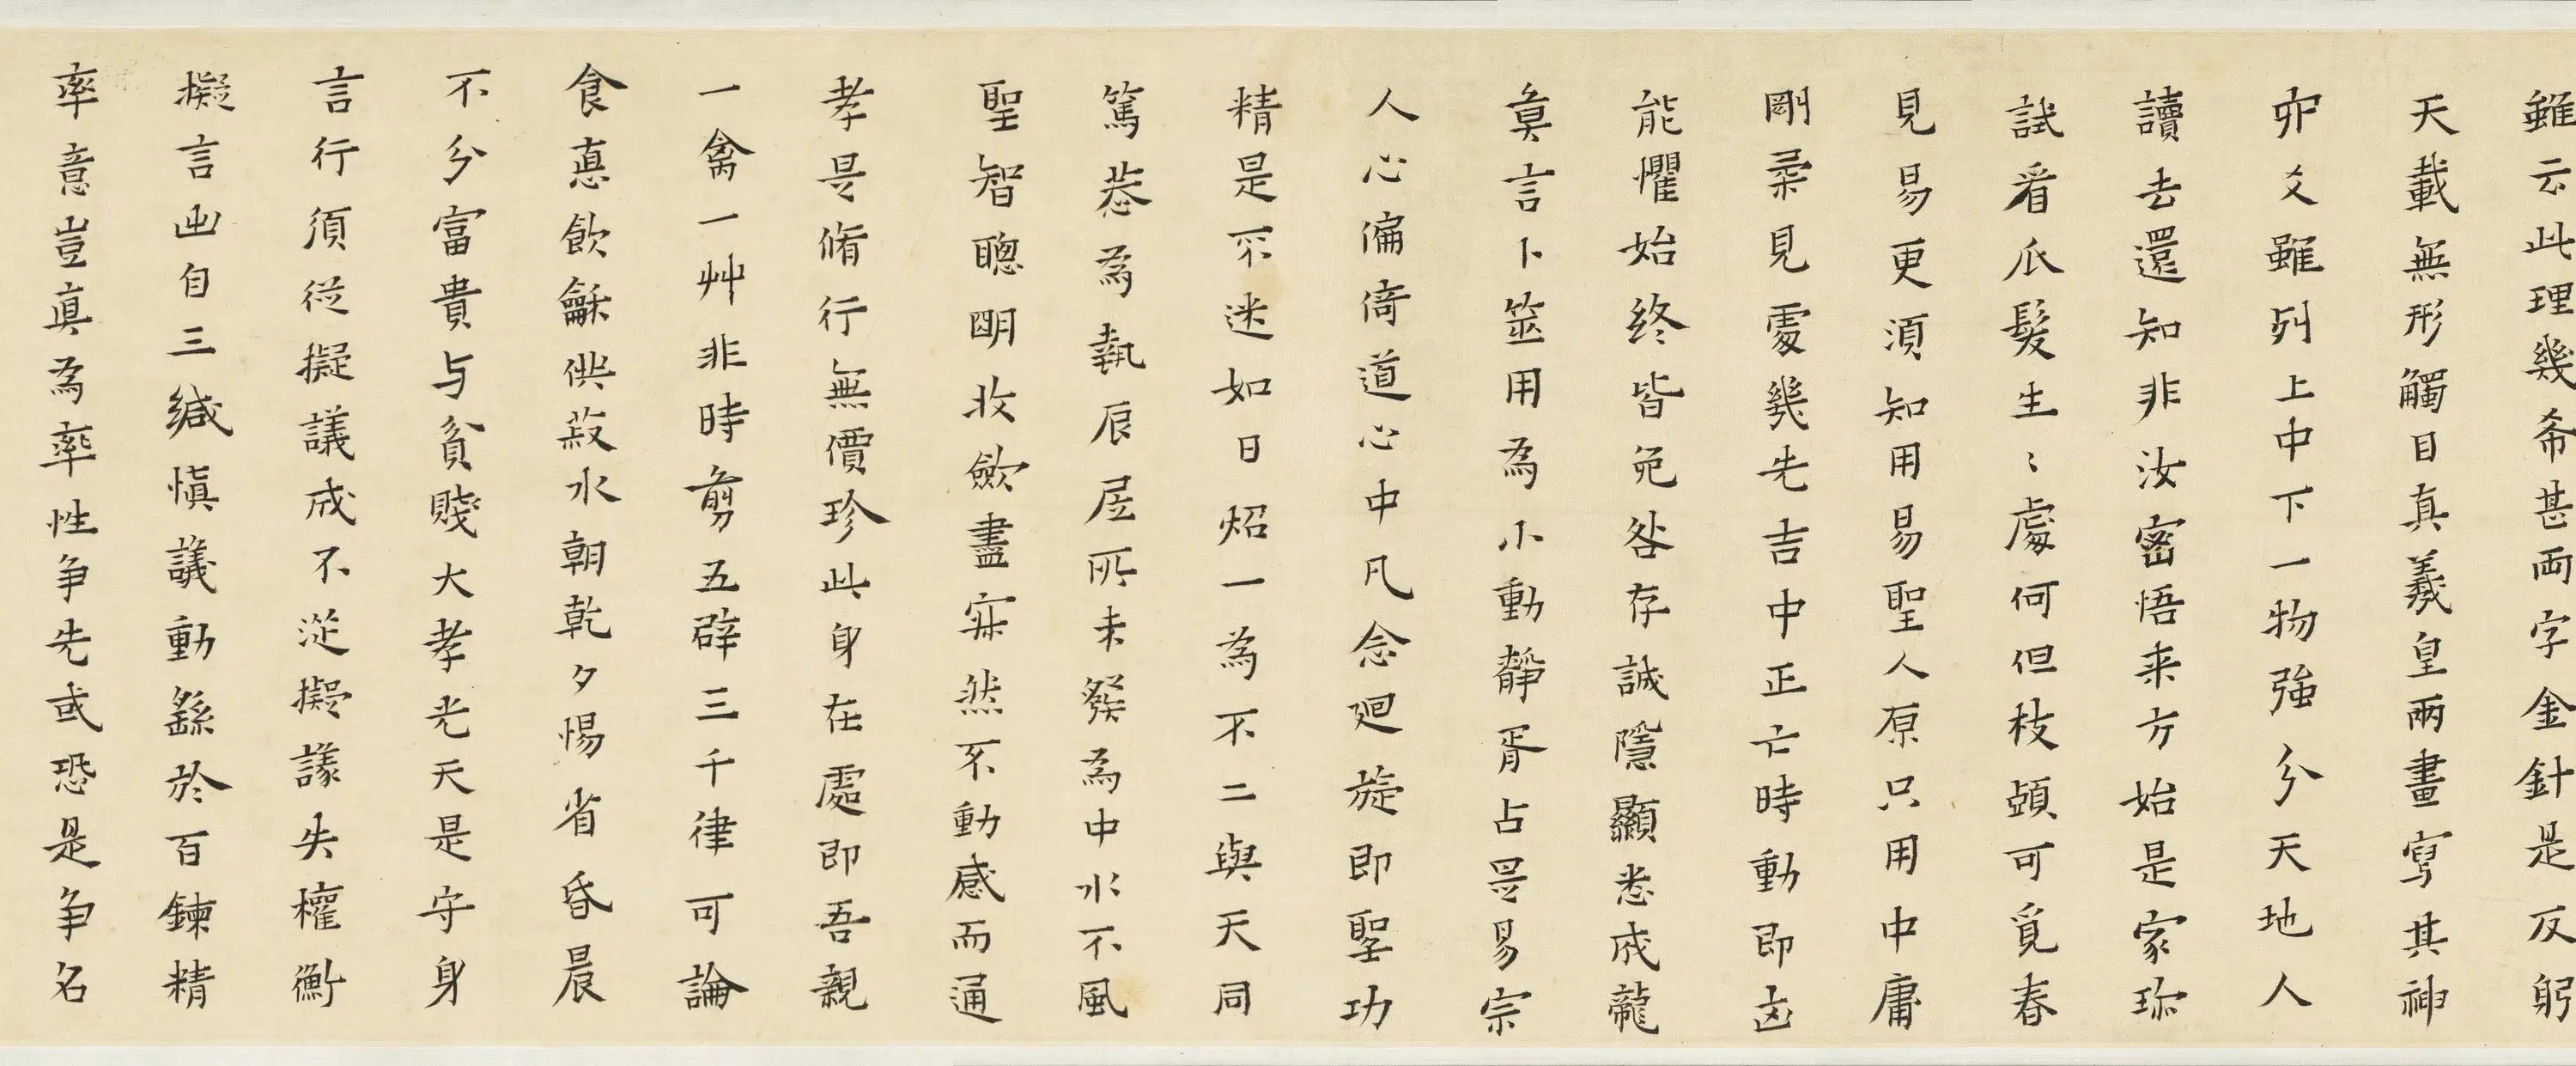 雖云此理幾希甚両字金針是反躬
天載無形觸目真羲皇兩畫寫其神
卯爻雖列上中下一物強分天地人
讀去還知非汝密悟来方始是家珎
試看瓜髮生〻處何但枝頭可覓春
見易更須知用易聖人原只用中庸
剛柔見處幾先吉中正亡時動即凶
能懼始終皆免咎存誠隱顯悉成龍
莫言卜筮用為小動靜胥占是易宗
人心偏倚道心中凡念廻旋即聖功
精是不迷如日炤一為不二與天同
篤恭為執辰居所未發為中水不風
聖智聰明收斂盡寂然不動感而通
孝是脩行無價珍此身在處即吾親
一禽一艸非時剪五辟三千律可論
食悳飲龢供菽水朝乾夕惕省昏晨
不分富貴与貧賤大孝光天是守身
言行須從擬議成不從擬議失權衡
擬言出自三緘慎議動繇於百鍊精
率意豈真為率性争先或恐是争名